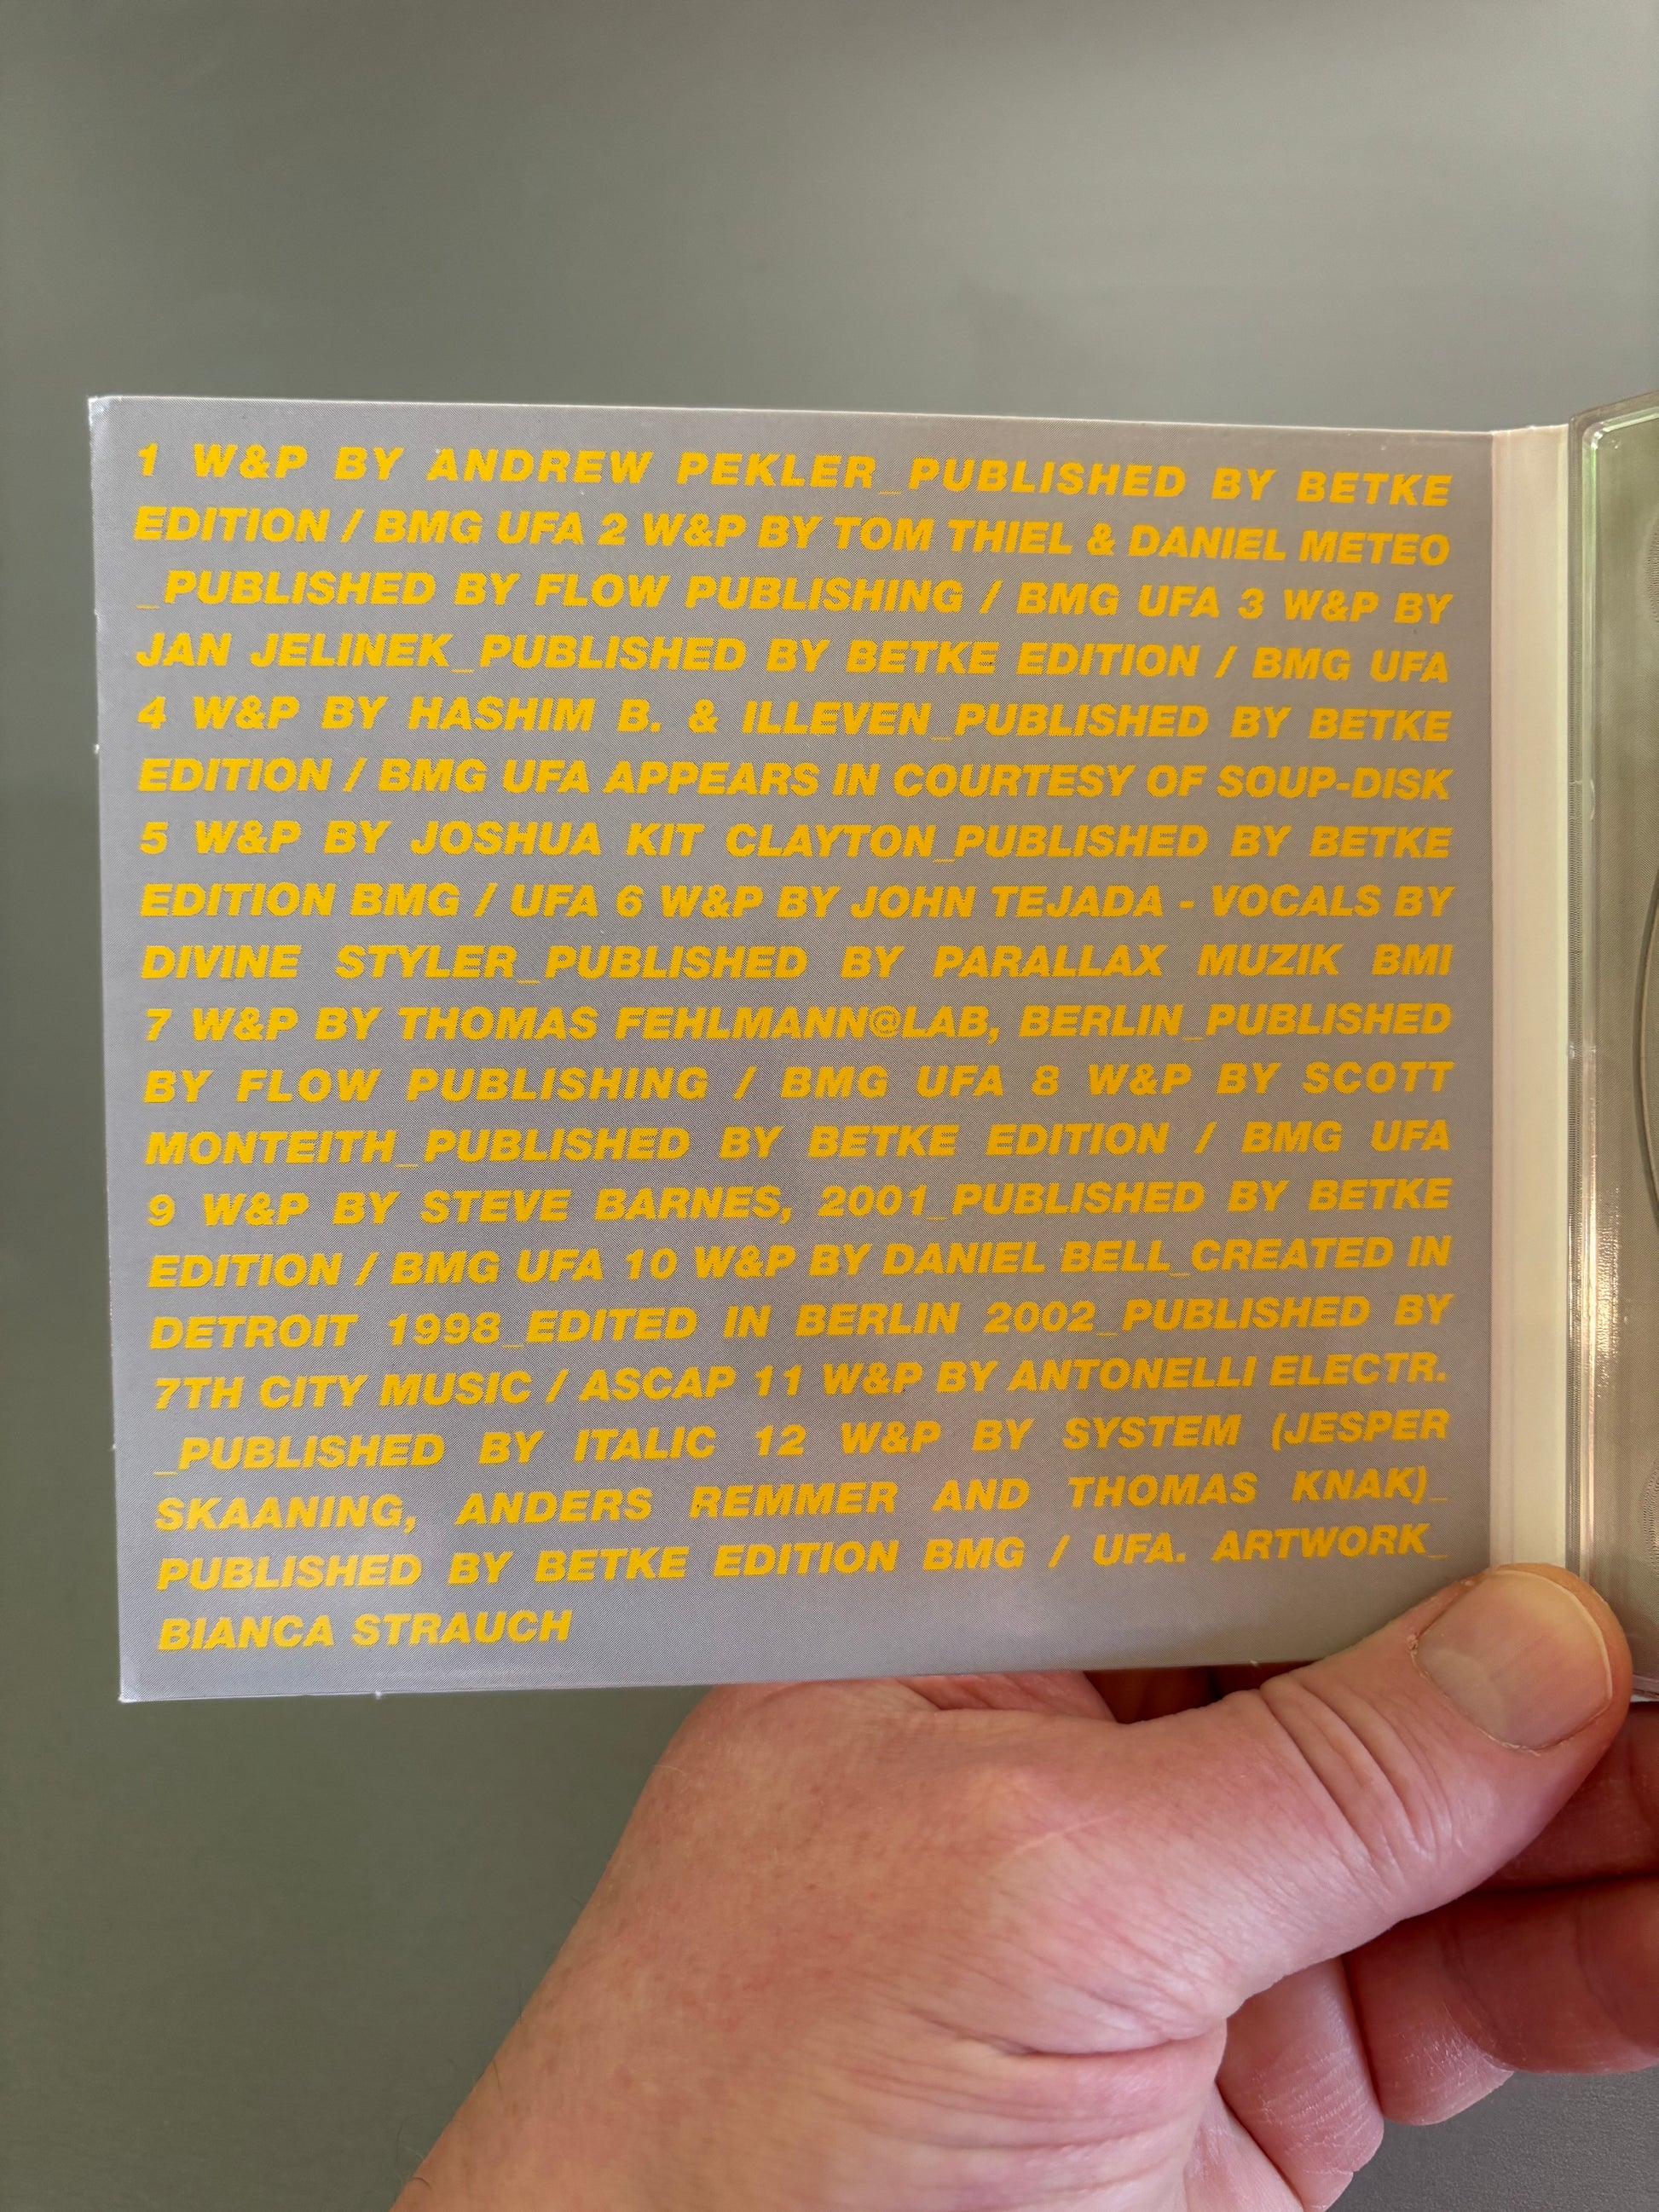 1 W&P BY ANDREW PEKLER_PUBLISHED BY BETKE
EDITION / BMG UFA 2 W&P BY TOM THIEL & DANIEL METEO
_PUBLISHED BY FLOW PUBLISHING / BMG UFA 3 W&P BY
JAN JELINEK_PUBLISHED BY BETKE EDITION / BMG UFA
4 W&P BY HASHIM B. & ILLEVEN_PUBLISHED BY BETKE
EDITION / BMG UFA APPEARS IN COURTESY OF SOUP-DISK
5 W&P BY JOSHUA KIT CLAYTON_PUBLISHED BY BETKE
EDITION BMG / UFA 6 W&P BY JOHN TEJADA - VOCALS BY
DIVINE STYLER_PUBLISHED BY PARALLAX MUZIK BMI
7 W&P BY THOMAS FEHLMANN@LAB, BERLIN_PUBLISHED
BY FLOW PUBLISHING / BMG UFA 8 W&P BY SCOTT
MONTEITH_PUBLISHED BY BETKE EDITION / BMG UFA
9 W&P BY STEVE BARNES, 2001_PUBLISHED BY BETKE
EDITION / BMG UFA 10 W&P BY DANIEL BELL_CREATED IN
DETROIT 1998_EDITED IN BERLIN 2002_PUBLISHED BY
7TH CITY MUSIC / ASCAP 11 W&P BY ANTONELLI ELECTR.
_PUBLISHED BY ITALIC 12 W&P BY SYSTEM (JESPER
SKAANING, ANDERS REMMER AND THOMAS KNAK)_
PUBLISHED BY BETKE EDITION BMG / UFA. ARTWORK_
BIANCA STRAUCH